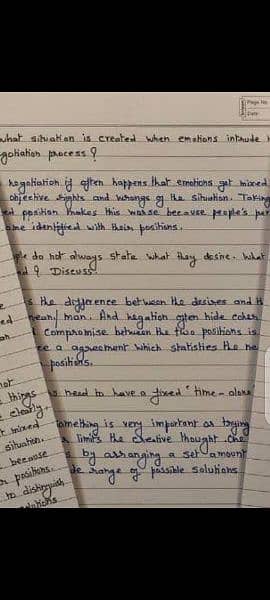 Page No.
Date
what situation is created when emotions intrude
gotiation process ?
negotiation it often happens that emotions get mixed
objective rights and wrongs of the situation. Taking
ed position makes this worse because people's
ome identified with their positions.
ple do not always state what they desire. What
d ? Discuss.
s the difference between the desires and
mean/ man. And negation often hide
Compromise between the two positions is
ce a agreement which statisties the ne
positions.
s need to have a fixed "time - alone
something is very important as trying
limits the creative thought. One
s by arranging a set amount
de range of possible solutions
e
ed
an
not
things
e clearly.
t mixed
situation.
because
positions.
to distinguish